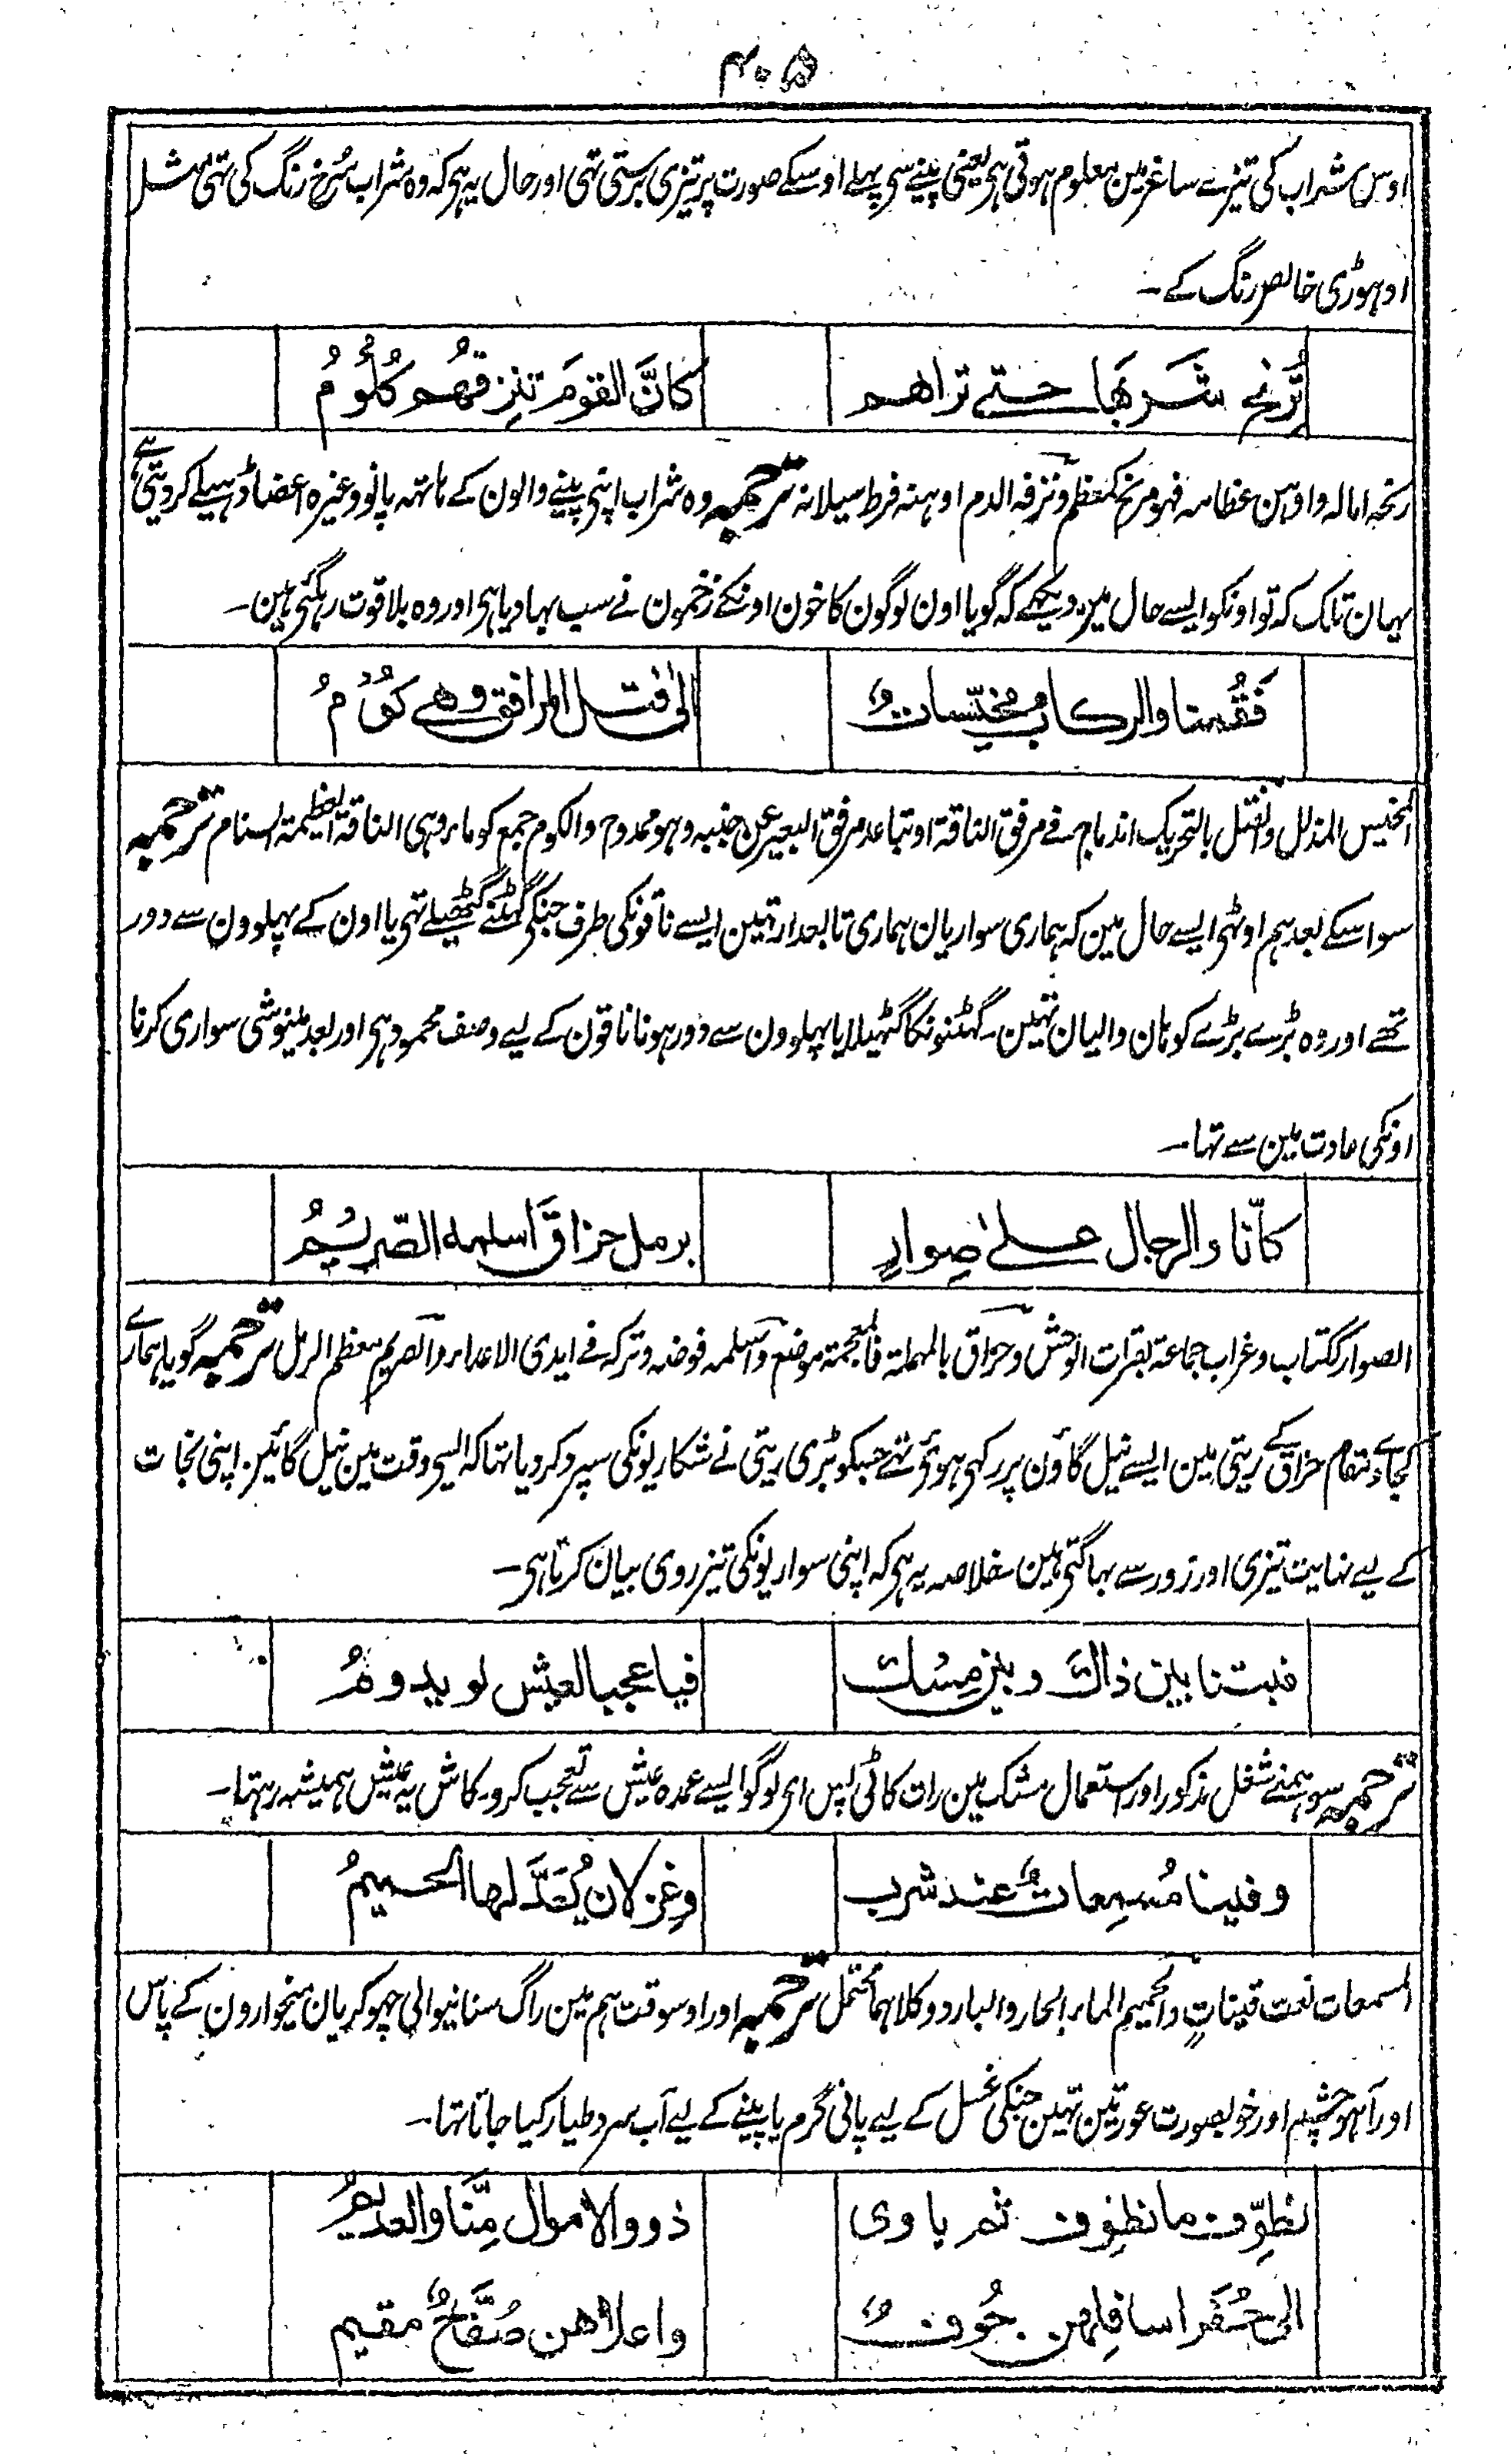 ۴۰۵
اوس شراب کی تیزے ساغر مین معلوم ہوتی ہی یعنی پینے سی پہلے اوسکے صورت پر تیزی برستی تہی اور حال یہ ہی کہ وہ شراب سُرخ رنگ کی تہی مثل
ادہوڑی خالص رنگ کے۔
تُرَنِّح شَربَها حتے تراهم كانَّ القومَ تنزفهُم كُلُومُ
رنحہ امالہ واوہن عظامہ فہو مرنح کمعظم ونزفہ الدم اوہنہ فرط سیلانہ ترجمہ وہ شراب اپنی پینے والون کے ہاتہہ پانو وغیرہ اعضا ڈہیلے کر دیتی ہے
یہان تلک کہ تو اونکو ایسے حال مین دیکہے کہ گویا اون لوگون کا خون اونکے زخمون نے سب بہا دیا ہی اور وہ بلا قوت رہگئی ہین۔
فَقُمنا والركاب مخيّسات الى فتل المرافق وهے كُومُ
المخیس المذلل والفتل بالتحریک اندماج فے مرفق الناقۃ او تباعد مرفق البعیر عن جنبہ وہو ممدوح والکوم جمع کوماء وہی الناقۃ العظیمۃ السنام ترجمہ
سو اسکے بعد ہم اوٹہی ایسے حال مین کہ ہماری سواریان ہماری تابعدار تہین ایسے ناقونکی طرف جنکی گہٹنے گٹھیلے تہی یا اون کے پہلوون سے دور
تھے اور وہ بڑے بڑے کوہان والیان تہین۔ گہٹنونکا گٹہیلا یا پہلوون سے دور ہونا ناقون کے لیے وصف محمود ہی اور بعد مینوشی سواری کرنا
اونکی عادت مین سے تہا۔
كانّا والرحال علےٰ صِوارٍ برمل حزاقَ اسلمه الصّريمُ
الصوار ککتاب وغراب جماعۃ بقرات الوحش وحزاق بالمہملۃ فالمعجمۃ موضع واسلمہ فوضہ وترکہ فے ایدی الاعداء والصریم معظم الرمل ترجمہ گویا ہمارے
کجاوے مقام حزاق کے ریتی مین ایسے نیل گاؤن پر رکہی ہوئی تھے جسکو بڑی ریتی نے شکاریونکی سپرد کر دیا تہا کہ ایسی وقت مین نیل گائین اپنی نجات
کے لیے نہایت تیزی اور زور سے بہاگتی ہین خلاصہ یہ ہی کہ اپنی سواریونکی تیز روی بیان کرتا ہی۔
فبتنا بين ذاك وبين مِسك فيا عجبا لعيش لو يدومُ
ترجمہ سو ہمنے شغل مذکور اور استعمال مشک مین رات کاٹی پس ای لوگو ایسے عمدہ عیش سے تعجب کرو کاش یہ عیش ہمیشہ رہتا۔
وفينا مُسمِعاتٌ عند شرب وغزلان يُعَدُّ لها الحميمُ
المسمعات نعت قیناتٍ والحمیم الماء الحار والبارد وکلاہما محتمل ترجمہ اور اوسوقت ہم مین راگ سنانیوالی چہوکریان میخوارون کے پاس
اور آہو چشم اور خوبصورت عورتین تہین جنکی غسل کے لیے پانی گرم یا پینے کے لیے آب سرد طیار کیا جاتا تہا۔
نطوِّف ما نطوِّف ثم ياوى ذوو الاموال مِنَّا والعديمُ
الى حُفَر اسافلهن جُوفٌ واعلاهن صُفَّاحٌ مقيم